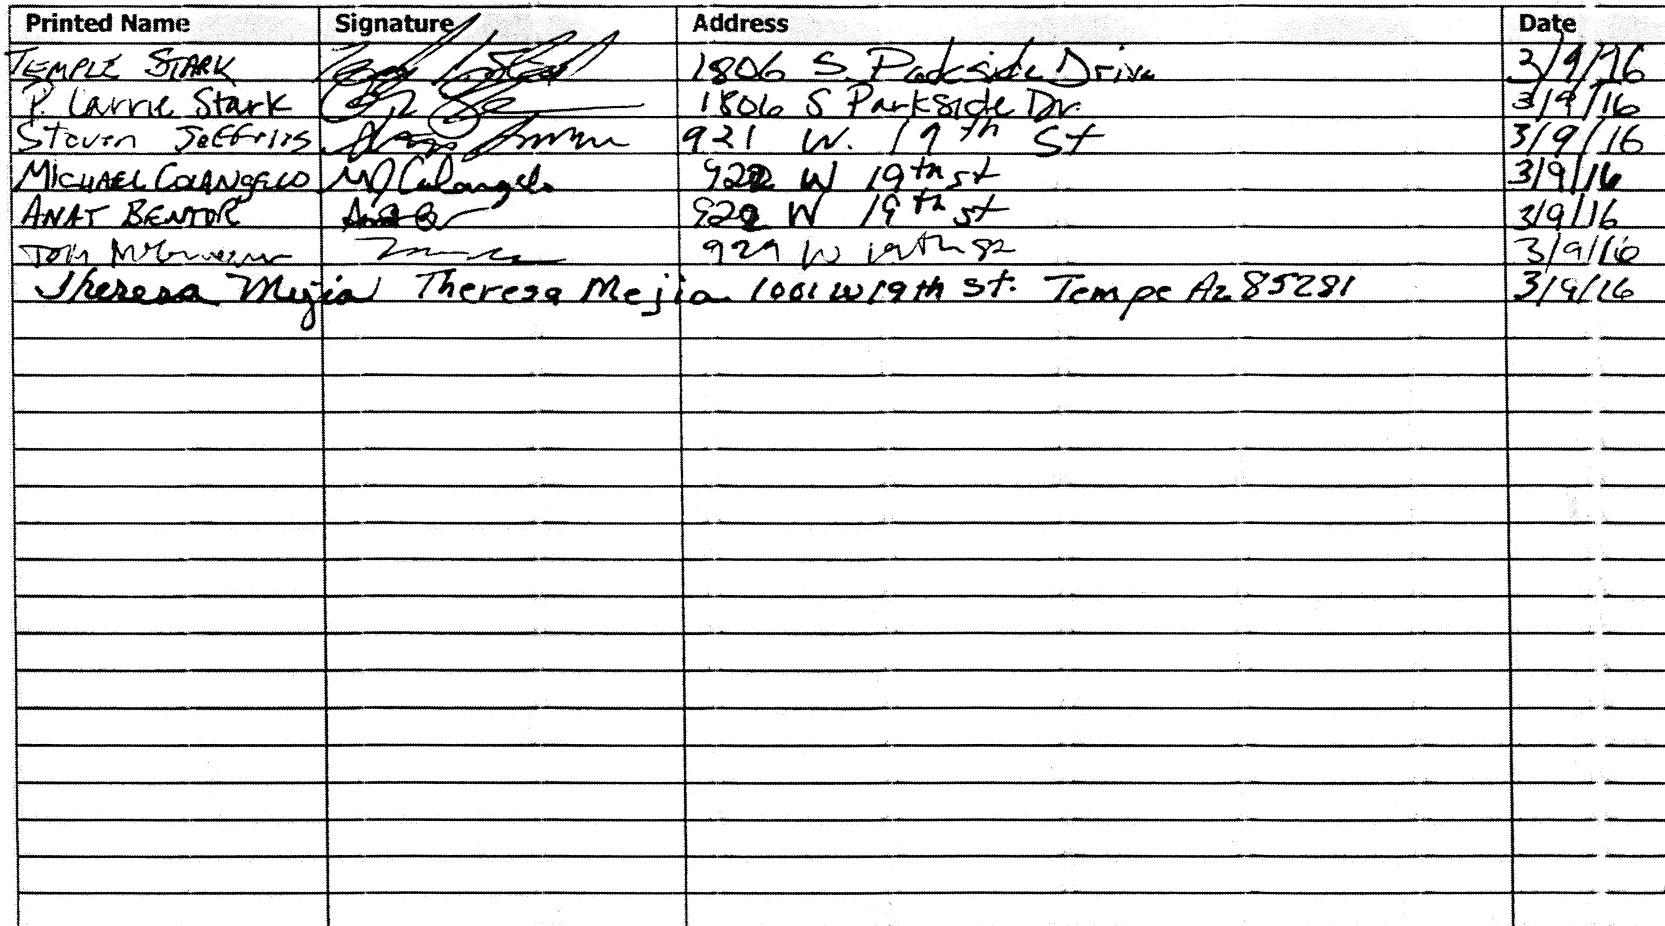 Printed Name Signature Address Date
TEMPLE STARK 1806 S. Parkside Drive 3/9/16
P. Carrie Stark 1806 S Parkside Dr. 3/9/16
Steven Jeffries 921 W. 19th St 3/9/16
MICHAEL COLANGELO MJ Colangelo 922 W 19th st 3/9/16
ANAT BENTOR 922 W 19th st 3/9/16
Tom 929 W 19th St 3/9/16
Theresa Mejia Theresa Mejia 1001 W 19th St. Tempe Az 85281 3/9/16